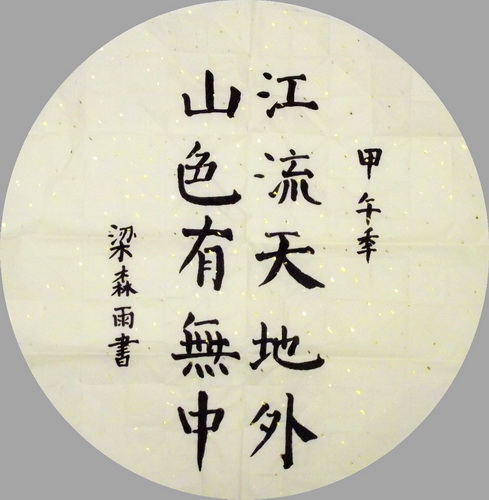 甲午季
江流天地外
山色有無中
梁森雨書